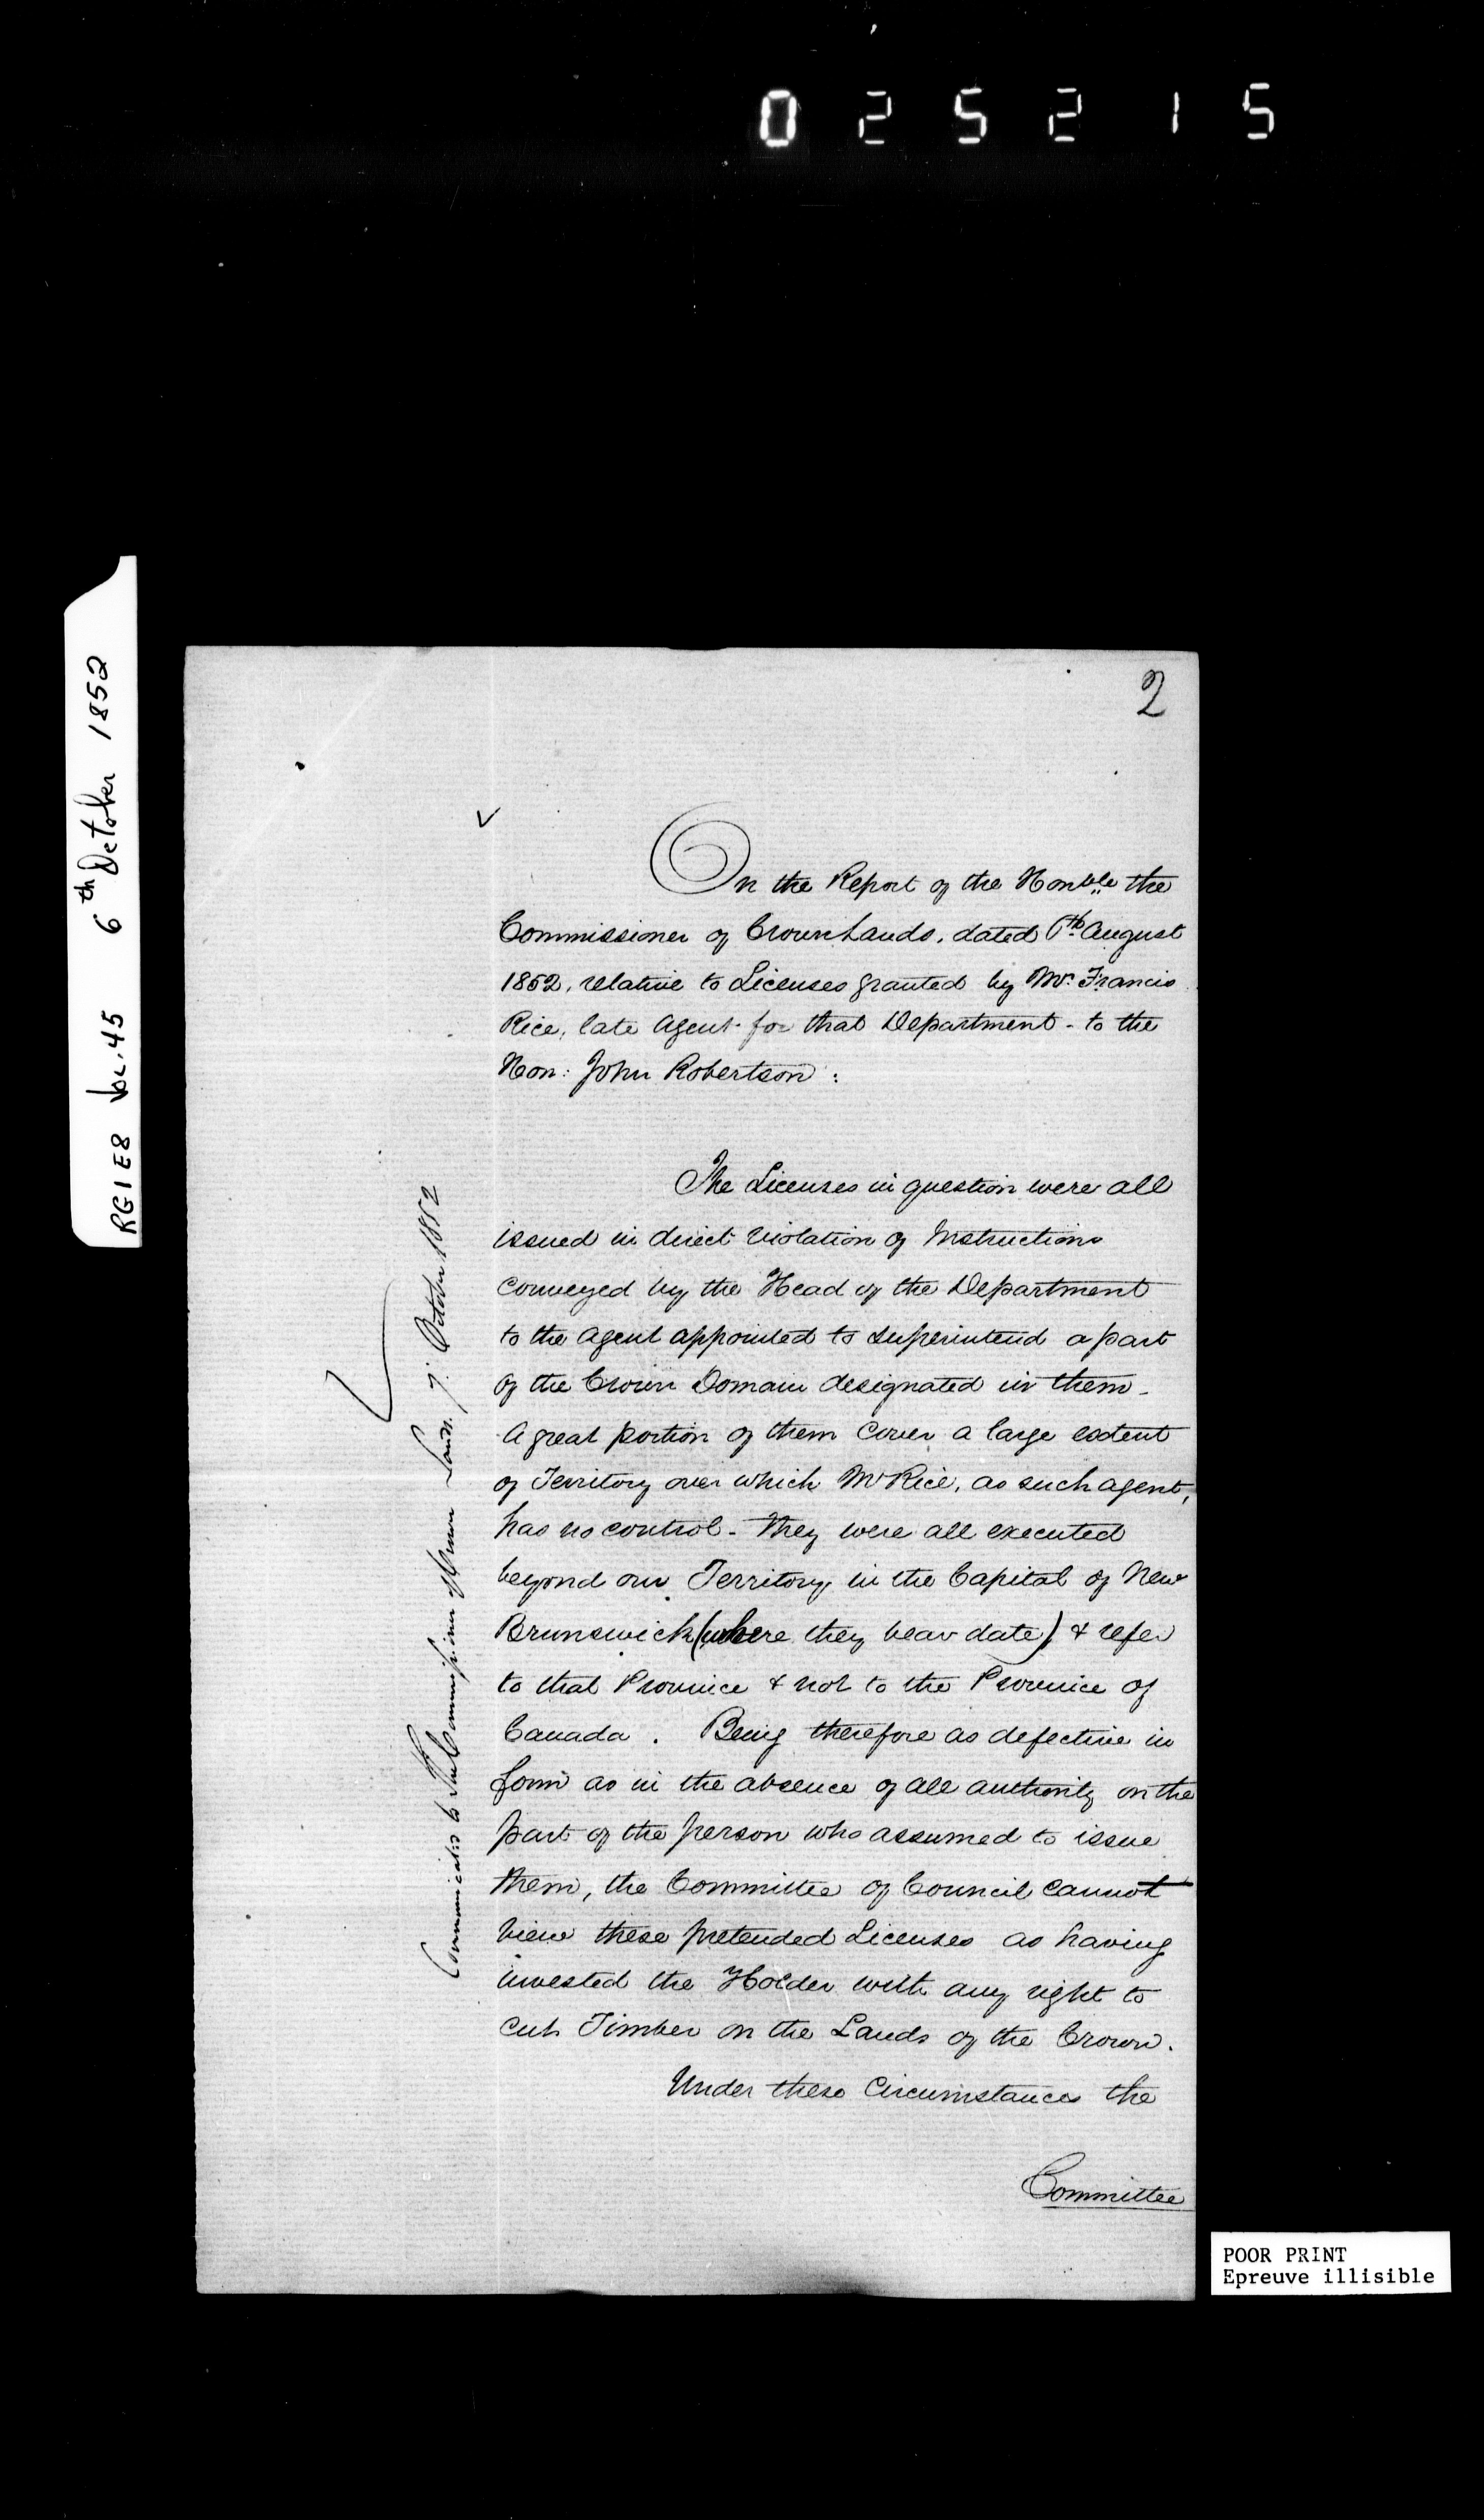 0 2 5 2 1 5
RG1E8 Vol. 45 6th October 1852
2
On the Report of the Honble the
Commissioner of Crown Lands, dated 6th August
1852, relative to Licenses granted by Mr. Francis
Rice, late Agent for that Department - to the
Hon: John Robertson :
The Licenses in question were all
issued in direct violation of Instructions
conveyed by the Head of the Department
to the Agent appointed to superintend a part
of the Crown Domain designated in them -
A great portion of them cover a large extent
of Territory over which Mr Rice, as such agent,
has no control - They were all executed
beyond our Territory in the Capital of New
Brunswick (where they bear date) & refer
to that Province & not to the Province of
Canada . Being therefore as defective in
form as in the absence of all authority on the
part of the person who assumed to issue
them, the Committee of Council cannot
view these pretended Licenses as having
invested the Holder with any right to
cut Timber on the Lands of the Crown.
Under these Circumstances the
Committee
Communicated to The Commissioner of Crown Lands. 7. October 1852
POOR PRINT
Epreuve illisible